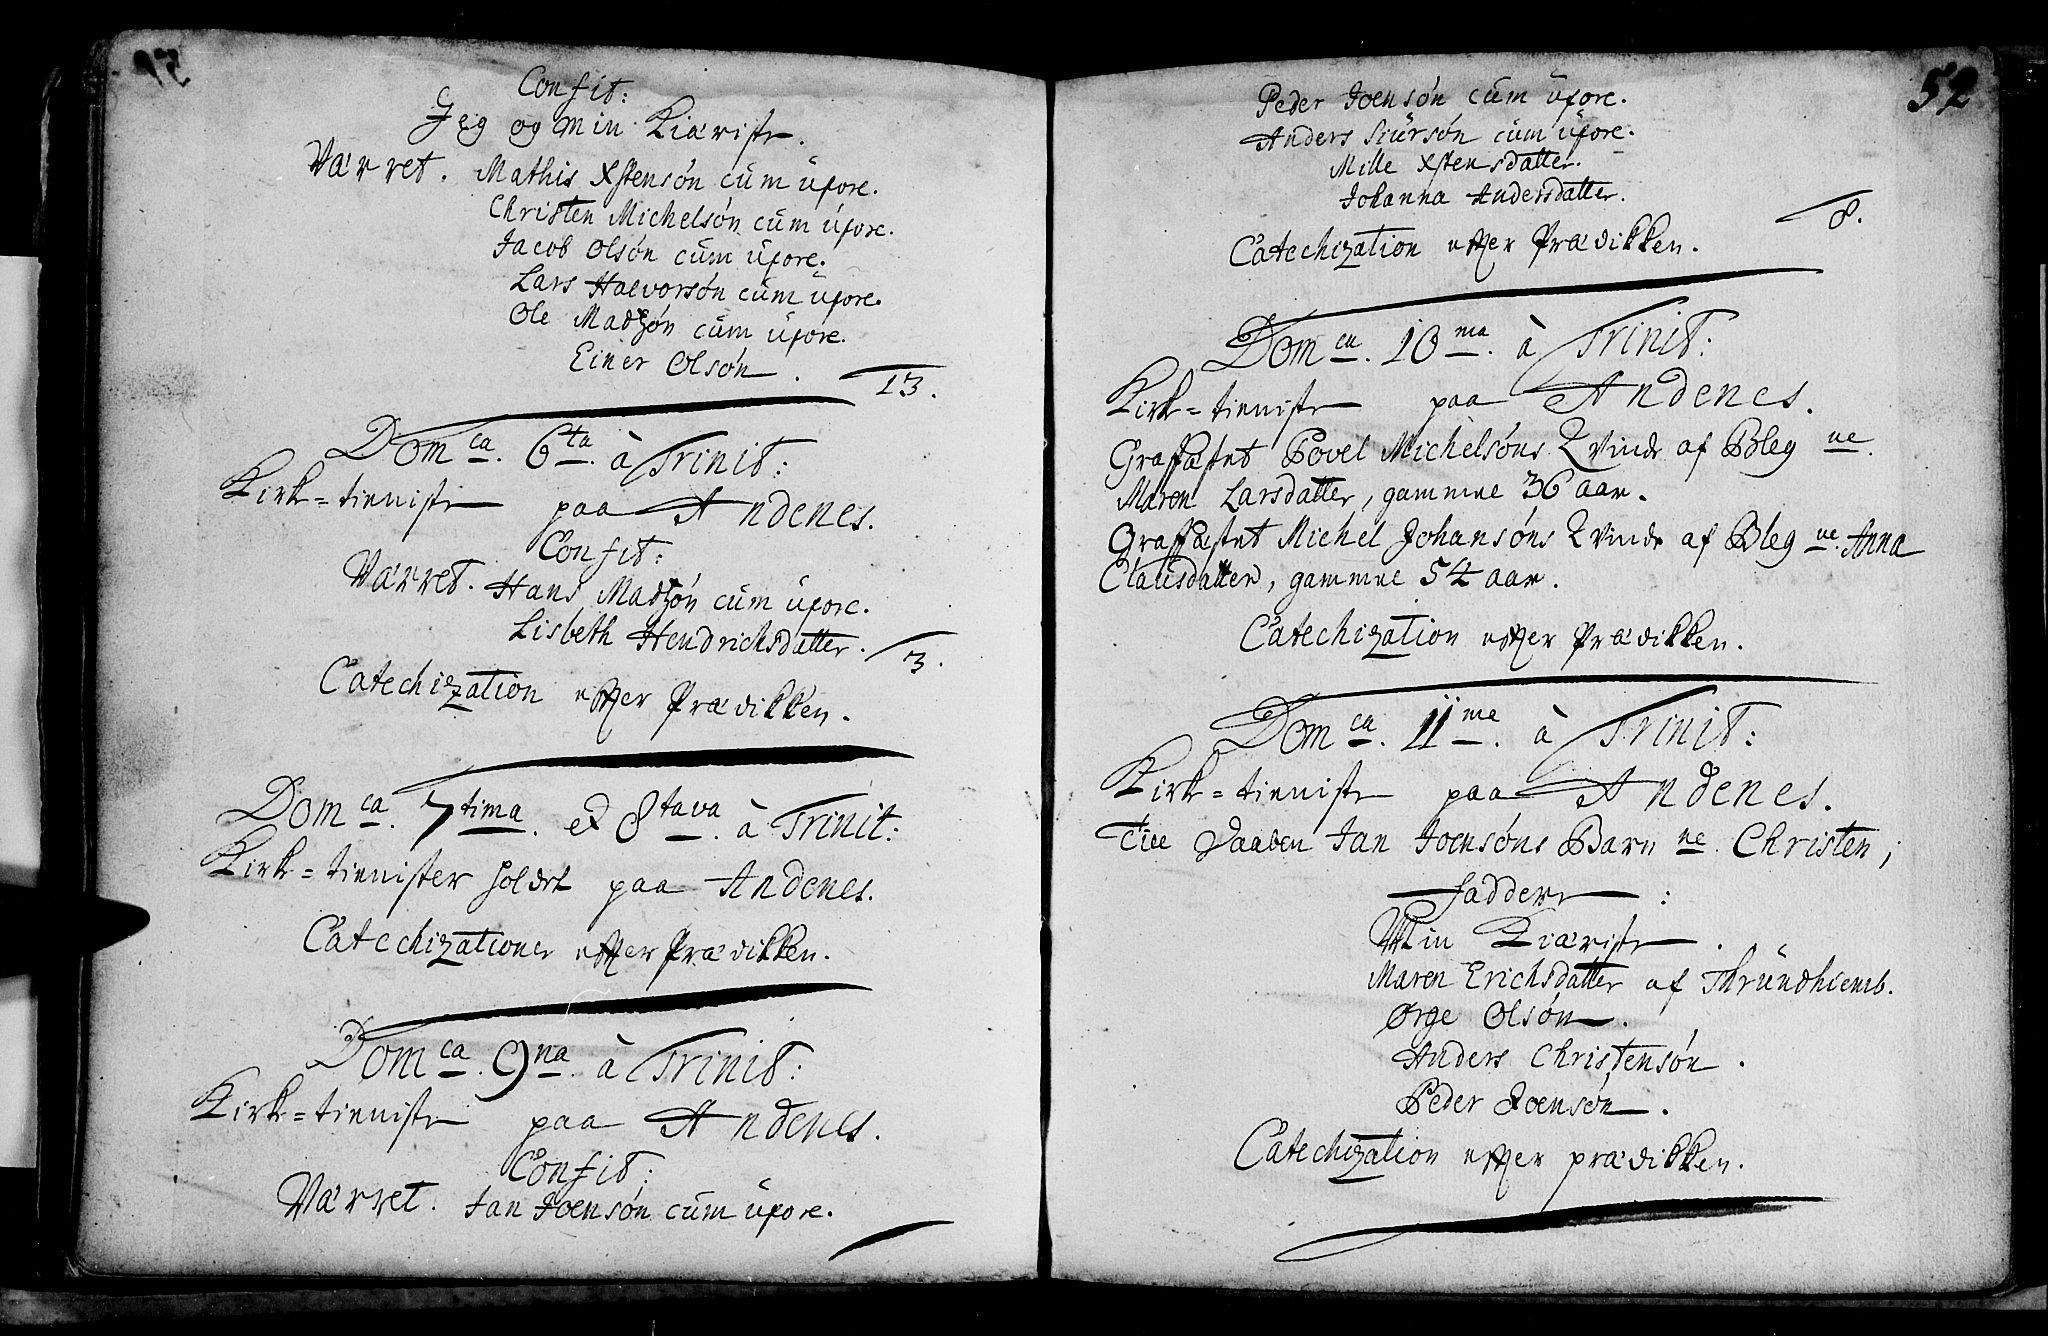 Confit:
Jeg og min Kiæriste.
Værret. Mathis Xstensón cum uxore.
Christen Michelsón cum uxore.
Jacob Olsón cum uxore.
Lars Halvorsón cum uxore.
Ole Madzón cum uxore.
Einer Olsón. 13.
Domca. 6ta. à Trinit:
Kirke-tieniste paa Andenes.
Confit:
Værret. Hans Madzón cum uxore.
Lisbeth Hendrichsdatter. 3.
Catechization effter Prædikken.
Domca. 7tima. et 8tava. à Trinit:
Kirke-tienister holdet paa Andenes.
Catechizationer effter Prædikken.
Domca. 9na. à Trinit:
Kirke-tieniste paa Andenes.
Confit:
Værret. Jan Joensón cum uxore.
52
Peder Joensón cum uxore.
Anders Siursón cum uxore.
Mille Xstensdatter.
Johanna Andersdatter.
8.
Catechization effter Prædikken.
Domca. 10ma. à Trinit:
Kirke-tieniste paa Andenes.
Graffæstet Povel Michelsóns Qvinde af Bleg ne.
Maren Larsdatter, gammel 36 aar.
Graffæstet Michel Johansóns Qvinde af Bleg ne. Anna
Clausdatter, gammel 54 aar.
Catechization effter Prædikken.
Domca. 11me. à Trinit:
Kirke-tieniste paa Andenes.
Till Daaben Jan Joensóns Barn ne. Christen;
Faddere:
Min Kiæriste.
Maren Erichsdatter af Thrundhiemb.
Ørge Olsón.
Anders Christensón.
Peder Joensón.
Catechization effter prædikken.